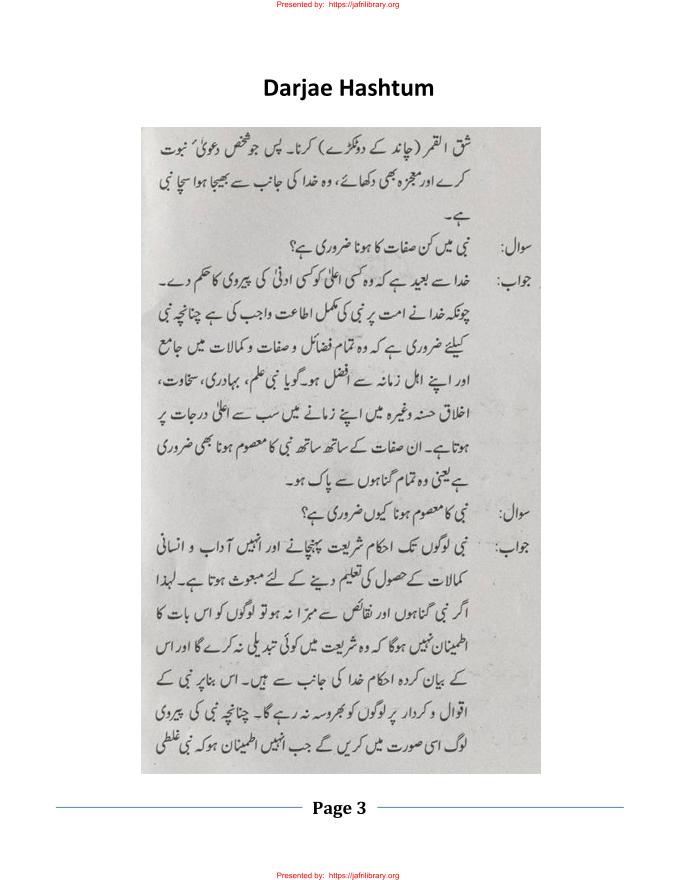 Presented by: https://jafrilibrary.org
Darjae Hashtum
شق القمر (چاند کے دوٹکڑے) کرنا۔ پس جوشخص دعویٰ نبوت
کرے اور معجزہ بھی دکھائے، وہ خدا کی جانب سے بھیجا ہوا سچا نبی
ہے۔
سوال: نبی میں کن صفات کا ہونا ضروری ہے؟
جواب: خدا سے بعید ہے کہ وہ کسی اعلیٰ کو کسی ادنیٰ کی پیروی کا حکم دے۔
چونکہ خدا نے امت پر نبی کی مکمل اطاعت واجب کی ہے چنانچہ نبی
کیلئے ضروری ہے کہ وہ تمام فضائل و صفات و کمالات میں جامع
اور اپنے اہل زمانہ سے افضل ہو۔ گویا نبی علم، بہادری، سخاوت،
اخلاق حسنہ وغیرہ میں اپنے زمانے میں سب سے اعلیٰ درجات پر
ہوتا ہے۔ ان صفات کے ساتھ ساتھ نبی کا معصوم ہونا بھی ضروری
ہے یعنی وہ تمام گناہوں سے پاک ہو۔
سوال: نبی کا معصوم ہونا کیوں ضروری ہے؟
جواب: نبی لوگوں تک احکام شریعت پہنچانے اور انہیں آداب و انسانی
کمالات کے حصول کی تعلیم دینے کے لئے مبعوث ہوتا ہے۔ لہٰذا
اگر نبی گناہوں اور نقائص سے مبرّا نہ ہو تو لوگوں کو اس بات کا
اطمینان نہیں ہوگا کہ وہ شریعت میں کوئی تبدیلی نہ کرے گا اور اس
کے بیان کردہ احکام خدا کی جانب سے ہیں۔ اس بناپر نبی کے
اقوال و کردار پر لوگوں کو بھروسہ نہ رہے گا۔ چنانچہ نبی کی پیروی
لوگ اسی صورت میں کریں گے جب انہیں اطمینان ہو کہ نبی غلطی
Page 3
Presented by: https://jafrilibrary.org